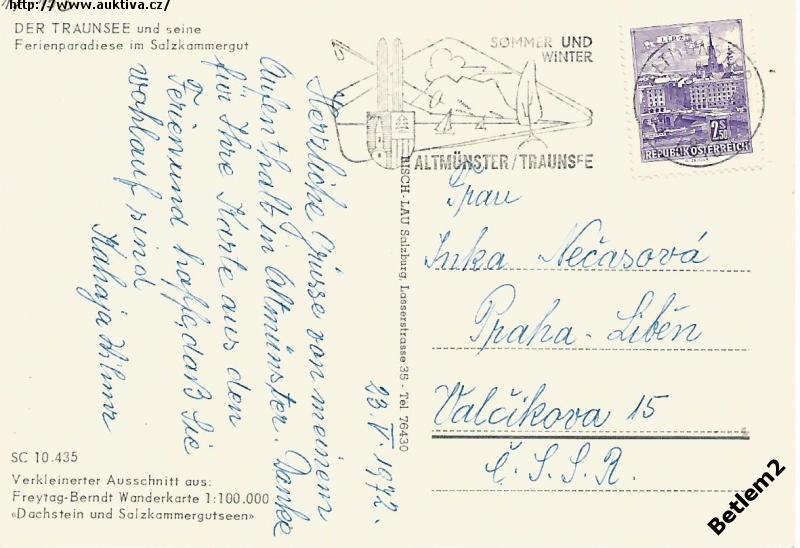 http://www.auktiva.cz/
DER TRAUNSEE und seine
Ferienparadiese im Salzkammergut
SOMMER UND
WINTER
ALTMÜNSTER/TRAUNSEE
2S50
REPUBLIK ÖSTERREICH
23. V. 1972.
Herrliche Grüsse von meinem
Aufenthalt in Altmünster. Danke
für Ihre Karte aus den
Ferien und hoffe, daß Sie
wohlauf sind
RISCH-LAU Salzburg, Lasserstrasse 35 - Tel. 76430
Frau
Inka Nečasová
Praha-Liběn
Valčikova 15
Č.S.S.R.
SC 10.435
Verkleinerter Ausschnitt aus:
Freytag-Berndt Wanderkarte 1:100.000
«Dachstein und Salzkammergutseen»
Betlem2